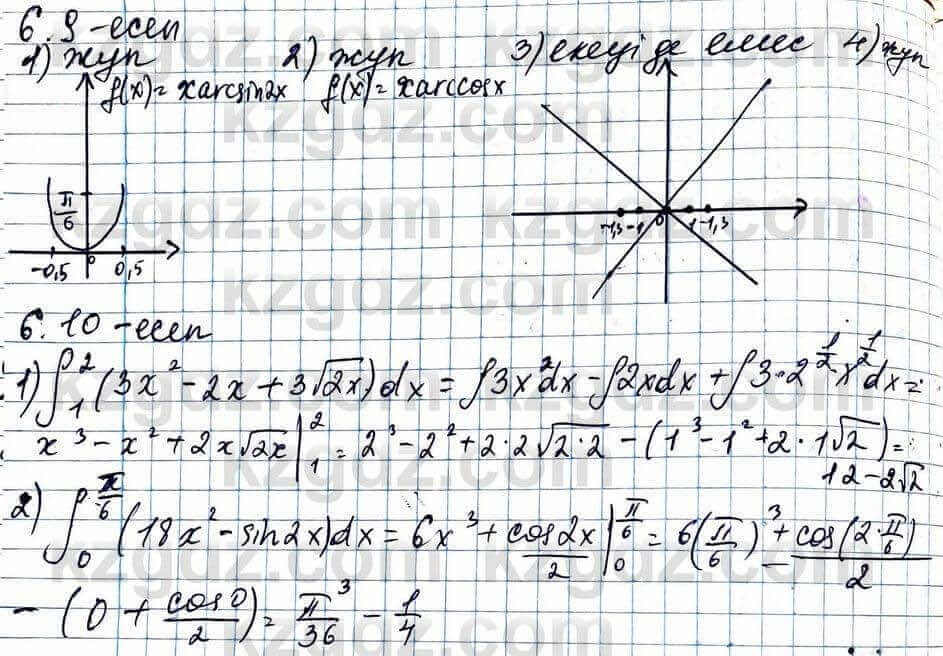 6.9-есеп
1) жұп 2) жұп 3) екеуі де емес 4) жұп
f(x) = x arcsin2x f(x) = x arccosx
π/6
-0,5 0 0,5
-1,3 -1 0 1 -1,3
6.10-есеп
1) ∫₁² (3x² - 2x + 3√2x) dx = ∫3x²dx - ∫2xdx + ∫3·2^(1/2) x^(1/2) dx =
x³ - x² + 2x√2x |₁² = 2³ - 2² + 2·2√2·2 - (1³ - 1² + 2·1√2) =
12 - 2√2
2) ∫₀^(π/6) (18x² - sin2x)dx = 6x³ + cos2x/2 |₀^(π/6) = 6(π/6)³ + cos(2·π/6)/2
- (0 + cos0/2) = π³/36 - 1/4
kzgdz.com